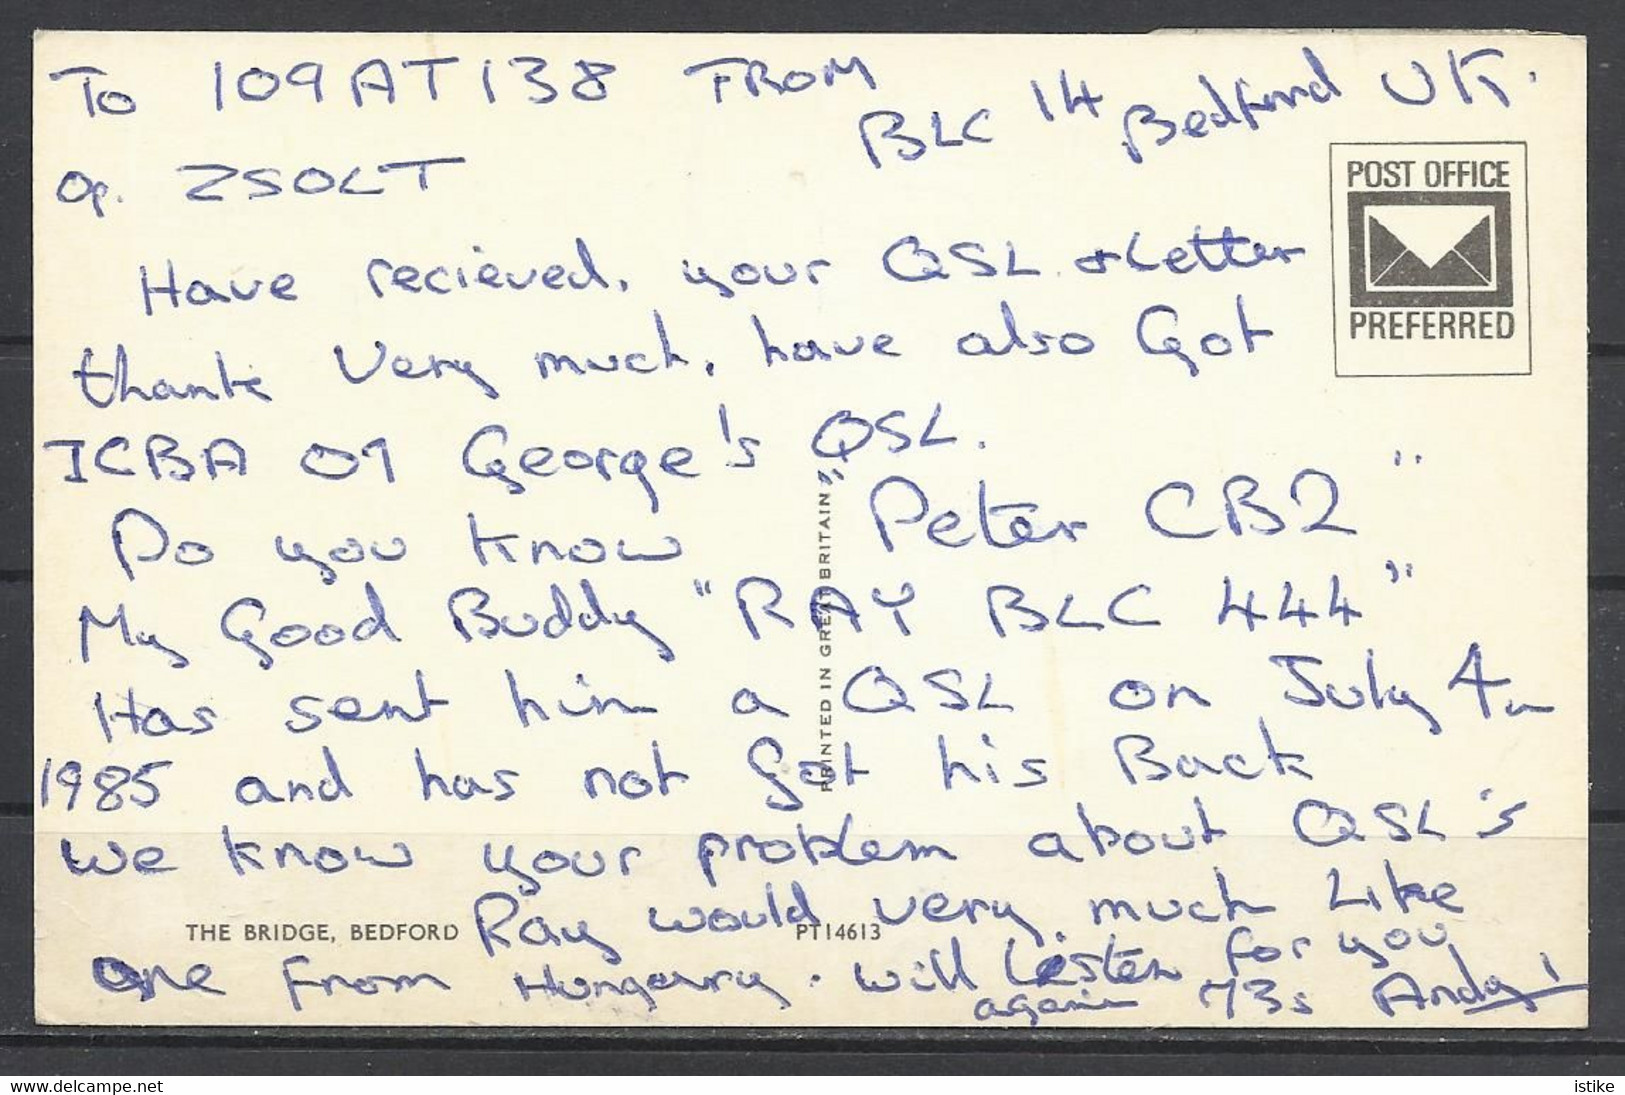 To 109 AT 138 FROM
BLC 14 Bedford UK.
Op. ZSOLT
POST OFFICE
PREFERRED
Have recieved, your QSL. & Letter
thank Very much, have also Got
ICBA 01 George's QSL.
Do you know "Peter CB2"
My Good Buddy "RAY BLC 444"
Has sent him a QSL on July 4
1985 and has not got his Back
we know your problem about QSL's
Ray would very much Like
one from Hungarry. will Listen for you
again 73s Andy!
PRINTED IN GREAT BRITAIN
THE BRIDGE, BEDFORD
PT14613
www.delcampe.net
istike